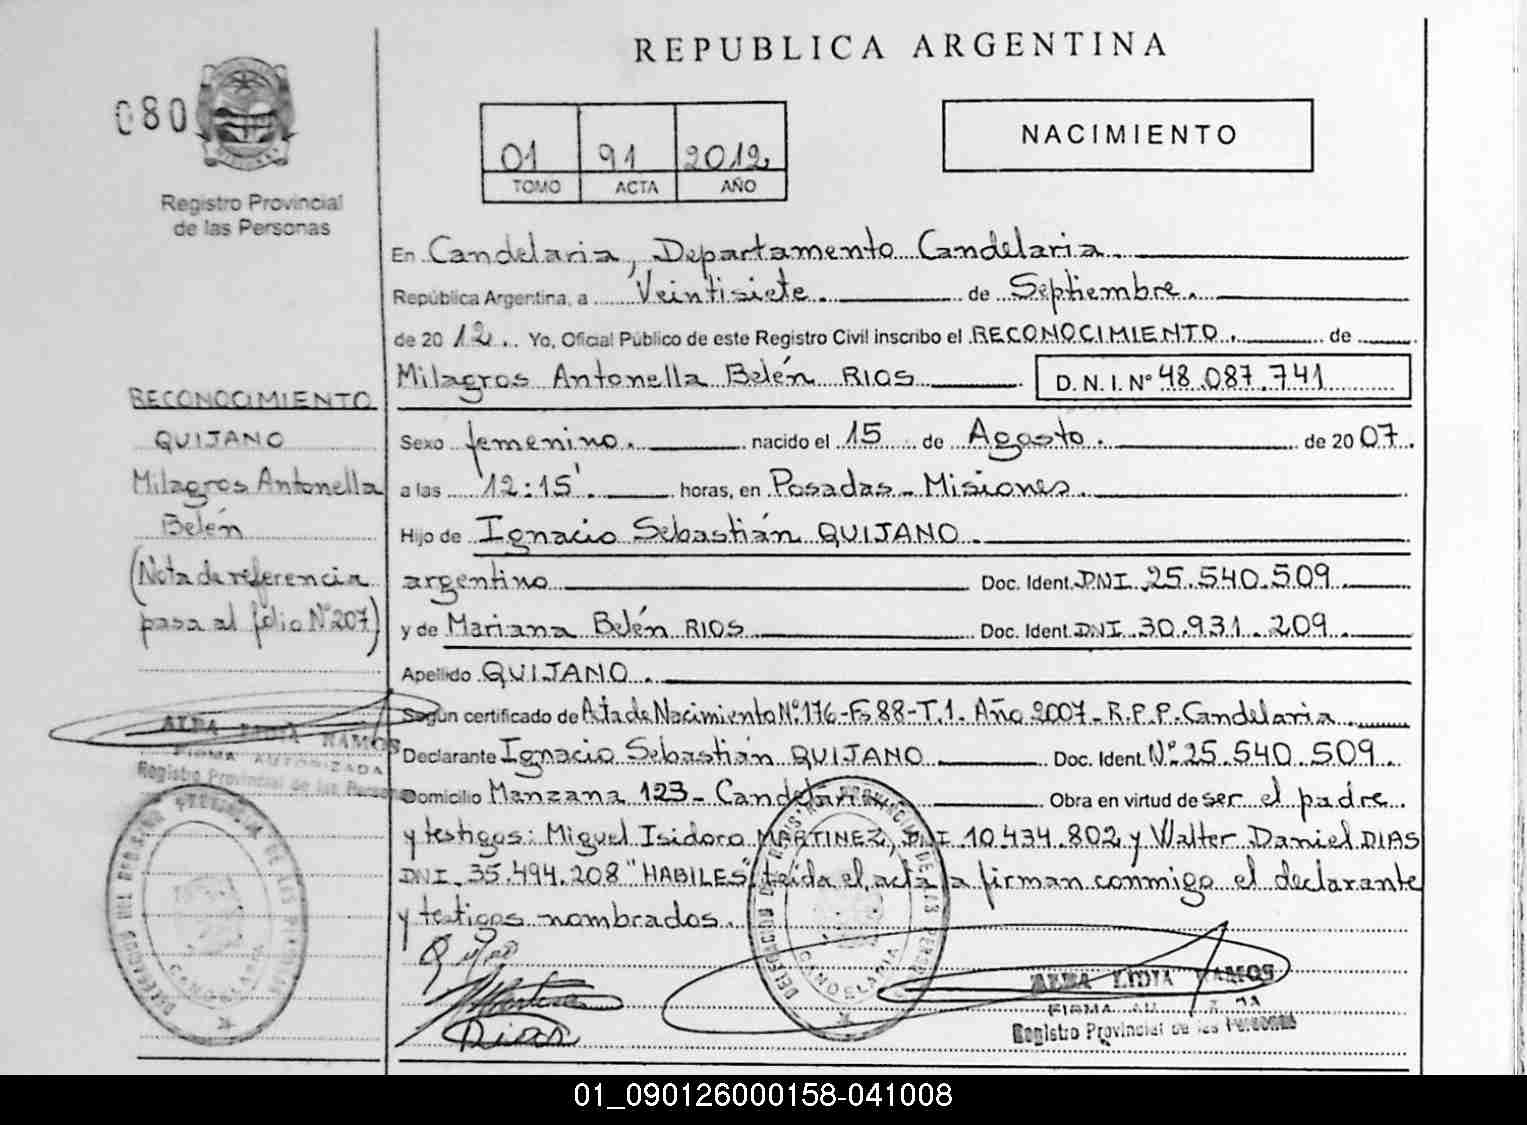 REPUBLICA ARGENTINA
080
01 91 2012
TOMO ACTA AÑO
NACIMIENTO
Registro Provincial
de las Personas
En Candelaria, Departamento Candelaria.
República Argentina, a Veintisiete. de Septiembre.
de 2012. Yo, Oficial Público de este Registro Civil inscribo el RECONOCIMIENTO. de
Milagros Antonella Belén RIOS D. N. I. Nº 48.087.741
RECONOCIMIENTO
QUIJANO
Milagros Antonella
Belén
(Nota de referencia
pasa al folio Nº 207)
Sexo femenino. nacido el 15 de Agosto. de 2007.
a las 12:15'. horas, en Posadas - Misiones.
Hijo de Ignacio Sebastián QUIJANO.
argentino Doc. Ident. DNI. 25.540.509.
y de Mariana Belén RIOS Doc. Ident. DNI. 30.931.209.
Apellido QUIJANO.
Según certificado de Acta de Nacimiento Nº 176-Fs 88-T.1. Año 2007-R.P.P. Candelaria
Declarante Ignacio Sebastián QUIJANO Doc. Ident. Nº 25.540.509.
Domicilio Manzana 123- Candelaria Obra en virtud de ser el padre
y testigos: Miguel Isidoro MARTINEZ, DNI. 10.434.802 y Walter Daniel DIAS
DNI. 35.494.208 "HABILES", leída el acta la firman conmigo el declarante
y testigos nombrados.
ALBA LIDIA RAMOS
FIRMA AUTORIZADA
Registro Provincial de las Personas
CANDELARIA
Dias
DELEGACION
CANDELARIA
ALBA LIDIA RAMOS
FIRMA
Registro Provincial de las Personas
01_090126000158-041008